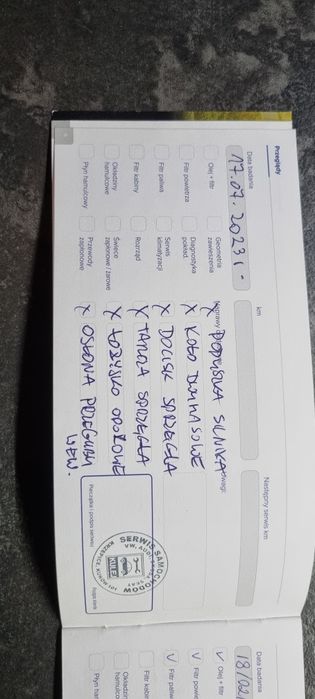 Przeglądy
Data badania
km
Następny serwis km
17.07.2023r.
Olej + filtr
Geometria zawieszenia
Naprawy
Uwagi:
X PODUSZKA SILNIKA
Filtr powietrza
Diagnostyka pokład.
X KOŁO DWUMASOWE
Filtr paliwa
Serwis klimatyzacji
X DOCISK SPRZĘGŁA
Filtr kabiny
Rozrząd
X TARCZA SPRZĘGŁA
Okładziny hamulcowe
Świece zapłonowe / żarowe
X ŁOŻYSKO OPOROWE
Płyn hamulcowy
Przewody zapłonowe
X OSŁONA PRZEGUBU
WEW.
Pieczątka i podpis serwisu
SERWIS SAMOCHODÓW
VW, AUDI
Data badania
18/02
V Olej + filtr
V Filtr pow
V Filtr paliw
Filtr kabin
Okładzi
hamulco
Płyn ham